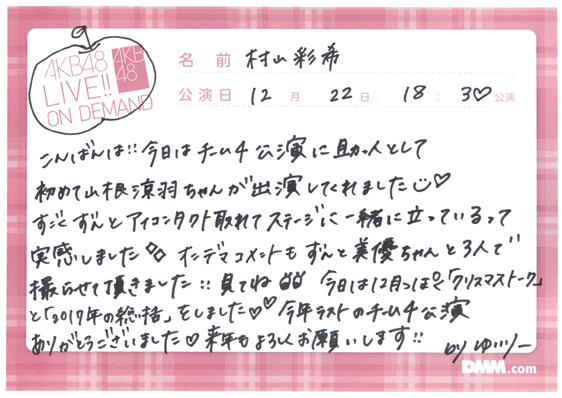 AKB48
LIVE!!
ON DEMAND
AKB
48
名 前 村山彩希
公演日 12 月 22 日 18 : 30 公演
こんばんは!! 今日はチーム4公演に助っ人として
初めて山根涼羽ちゃんが出演してくれました♡
すごくずんとアイコンタクト取れてステージに一緒に立っているって
実感しました オンデマコメントもずんと美優ちゃんと3人で
撮らせて頂きました!! 見てね 今日は12月っぽく「クリスマストーク」
と「2017年の総括」をしました♡♡ 今年ラストのチーム4公演
ありがとうございました♡ 来年もよろしくお願いします!!
by ゆいりー
DMM.com